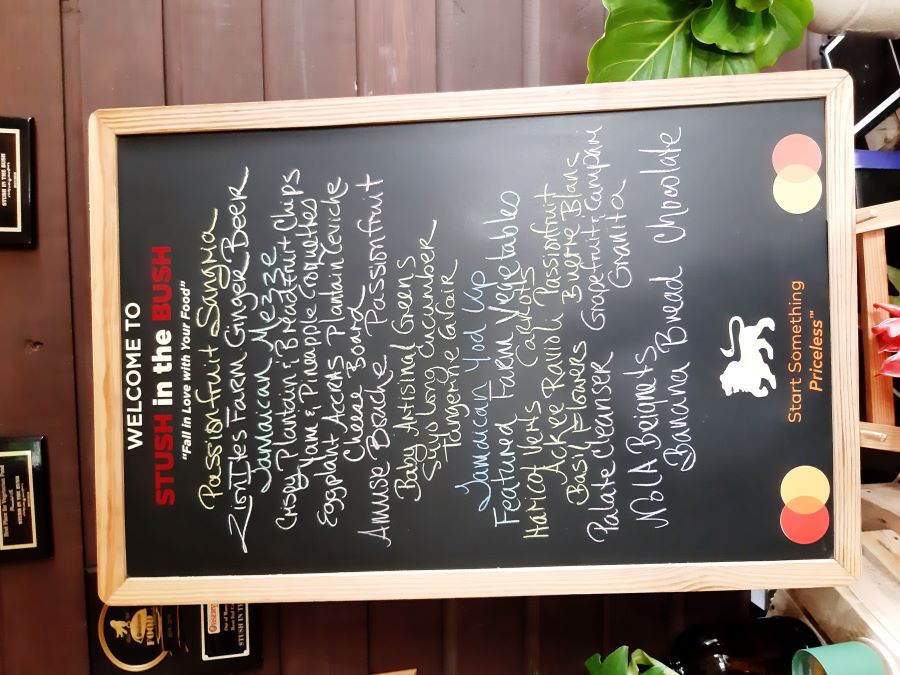 WELCOME TO
STUSH in the BUSH
"Fall in Love with Your Food"
Passionfruit Sangria
ZionItes Farm Ginger Beer
Jamaican Mezze
Crispy Plantain & Breadfruit Chips
Yam & Pineapple Croquettes
Eggplant Accras Plantain Ceviche
Cheese Board
Amuse Bouche Passionfruit
Baby Artisinal Greens
Suyo Long Cucumber
Tangerine Caviar
Jamaican Yod Up
Featured Farm Vegetables
Haricot Verts Carrots
Ackee Ravioli Passionfruit
Basil Flowers Buerre Blanc
Palate Cleanser Grapefruit & Campari
Granita
NoLA Beignets
Banana Bread Chocolate
Start Something
Priceless™
STUSH IN THE BUSH
Best Place for Vegetarian Food
STUSH IN THE BUSH
FOOD
OBSERVER
STUSH IN T